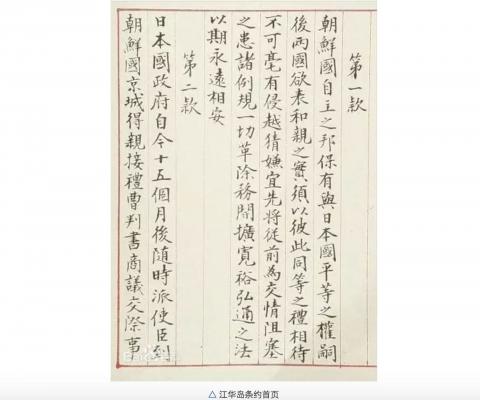 第一款
朝鮮國自主之邦保有與日本國平等之權嗣
後兩國欲表和親之實須以彼此同等之禮相待
不可毫有侵越猜嫌宜先將從前為交情阻塞
之患諸例規一切革除務開擴寬裕弘通之法
以期永遠相安
第二款
日本國政府自今十五個月後隨時派使臣到
朝鮮國京城得親接禮曹判書商議交際事
Baidu百科
△ 江华岛条约首页